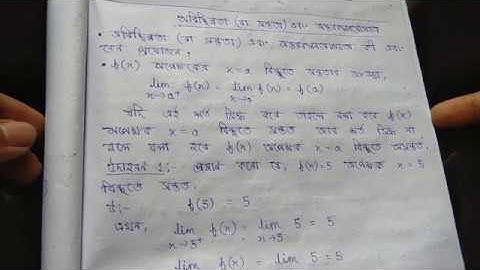 অবিচ্ছিন্নতা (বা সন্ততা) এবং অন্তরকলনযোগ্যতা
• অবিচ্ছিন্নতা (বা সন্ততা) এবং অন্তরকলনযোগ্যতা কী এবং
কেন প্রয়োজন,
• f(x) অপেক্ষকের x = a বিন্দুতে সন্ততার সংজ্ঞা,
lim x→a⁺ f(x) = lim x→a⁻ f(x) = f(a)
যদি এই শর্ত সিদ্ধ করে তাহলে বলা হবে f(x)
অপেক্ষক x = a বিন্দুতে সন্তত আর শর্ত সিদ্ধ না
হলে বলা হবে f(x) অপেক্ষক x = a বিন্দুতে অসন্তত,
উদাহরণ 1:- প্রমাণ করো যে, f(x)=5 অপেক্ষক x = 5
বিন্দুতে সন্তত,
উঃ- f(5) = 5
এখন, lim x→5⁺ f(x) = lim x→5 5 = 5
lim f(x) = lim 5 = 5